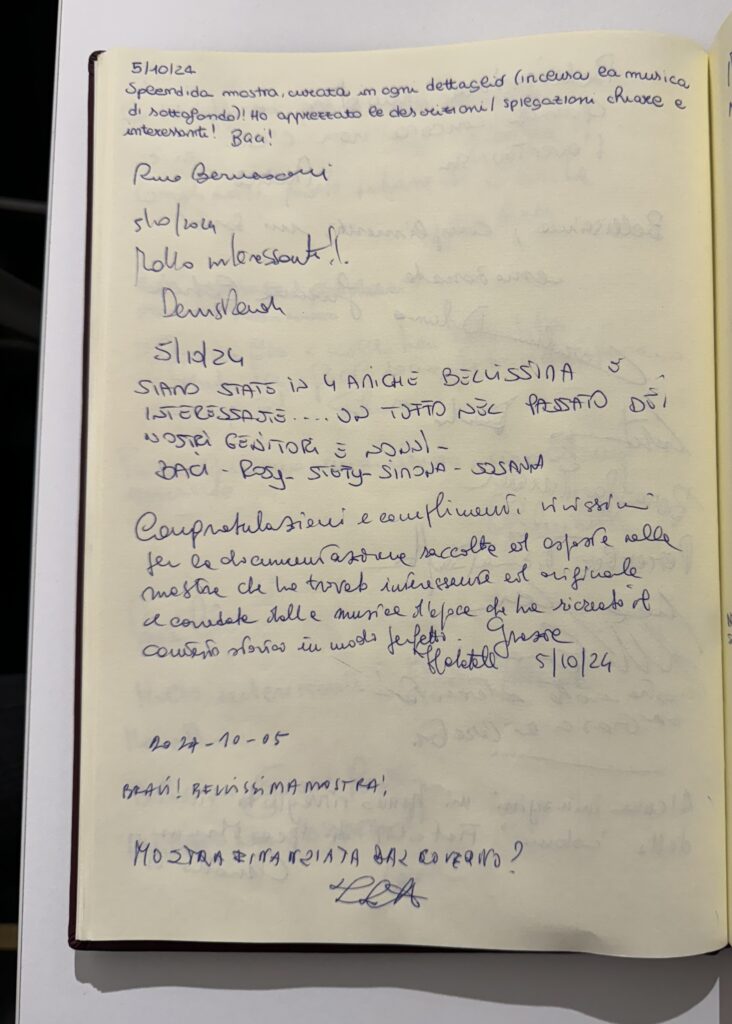 5/10/24
Splendida mostra, curata in ogni dettaglio (inclusa la musica
di sottofondo)! Ho apprezzato le descrizioni/ spiegazioni chiare e
interessanti! Baci!
Bernasconi
5/10/2024
Molto interessante!!
5/10/24
SIAMO STATE IN 4 AMICHE BELLISSIMA E
INTERESSANTE.... UN TUTTO NEL PASSATO DEI
NOSTRI GENITORI E NONNI-
BACI - ROSY- STEFY- SIMONA - SOSANNA
Congratulazioni e complimenti vivissimi
per la documentazione raccolta ed esposta nella
mostra che ho trovato interessante ed originale
e corredata dalla musica d'epoca che ha ricreato il
contesto storico in modo perfetto. Grazie
5/10/24
2024-10-05
BRAVI! BELLISSIMA MOSTRA!
MOSTRA FINANZIATA DAL GOVERNO?